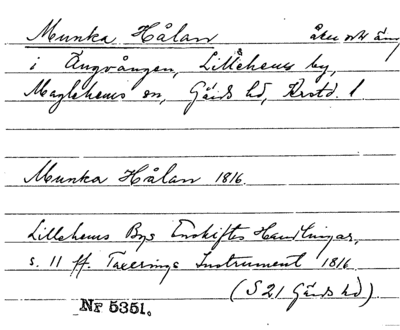 Munka Hålan åker och äng
i Ängvången, Lillehems by,
Maglehems sn, Gärds hd, Krstd. l
Munka Hålan 1816.
Lillehems Bys Enskiftes Handlingar,
s. 11 ff. Taxerings Instrument 1816
(S 21 Gärds hd).
Nr 5351.